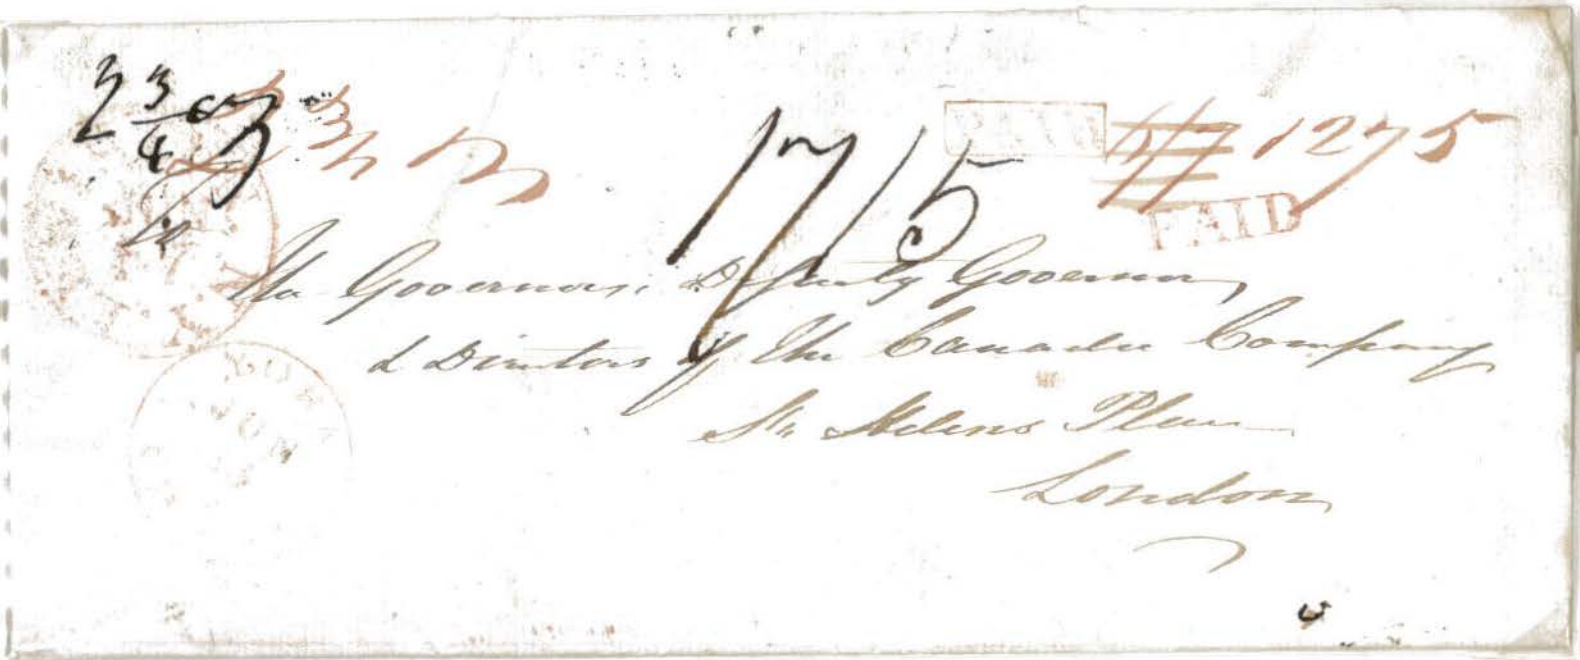 2 3/4 oz
17/5
PAID 5/7 1275
PAID
The Governor, Deputy Governor,
& Directors of the Canada Company
St. Helens Place
London